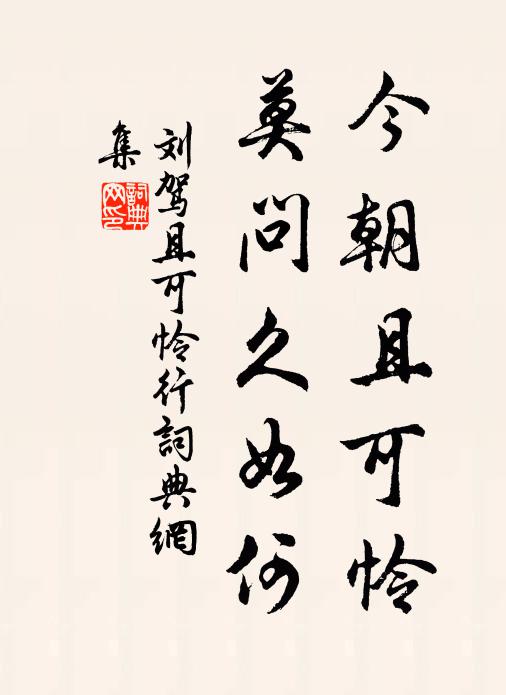 今朝且可怜
莫问久如何
刘驾且可怜行詞典網
集
詞典网印